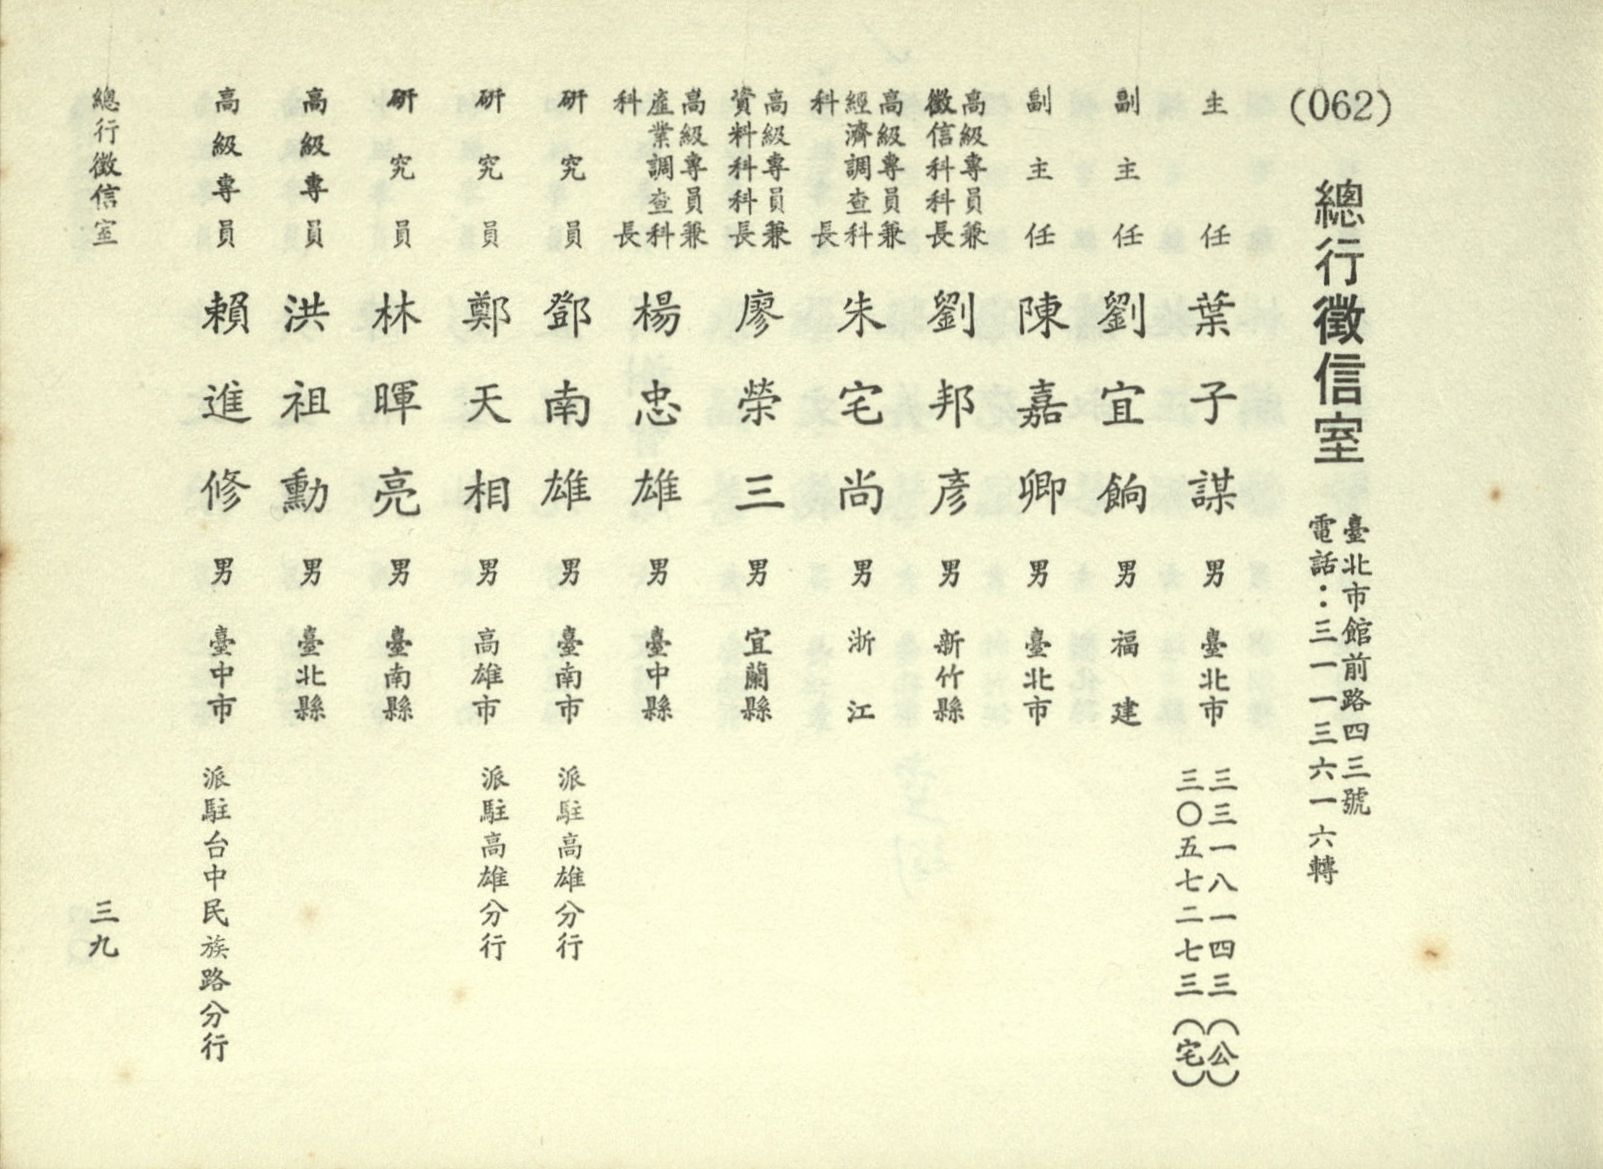 (062) 總行徵信室
臺北市館前路四三號
電話：三一一三六一六轉
主任 葉子謀 男 臺北市 三三一八一四三（公）
三〇五七二七三（宅）
副主任 劉宜餉 男 福建
副主任 陳嘉卿 男 臺北市
高級專員兼
徵信科科長 劉邦彥 男 新竹縣
高級專員兼
經濟調查科
科長 朱宅尚 男 浙江
高級專員兼
資料科科長 廖榮三 男 宜蘭縣
高級專員兼
產業調查科
科長 楊忠雄 男 臺中縣
研究員 鄧南雄 男 臺南市 派駐高雄分行
研究員 鄭天相 男 高雄市 派駐高雄分行
研究員 林暉亮 男 臺南縣
高級專員 洪祖勳 男 臺北縣
高級專員 賴進修 男 臺中市 派駐台中民族路分行
總行徵信室 三九